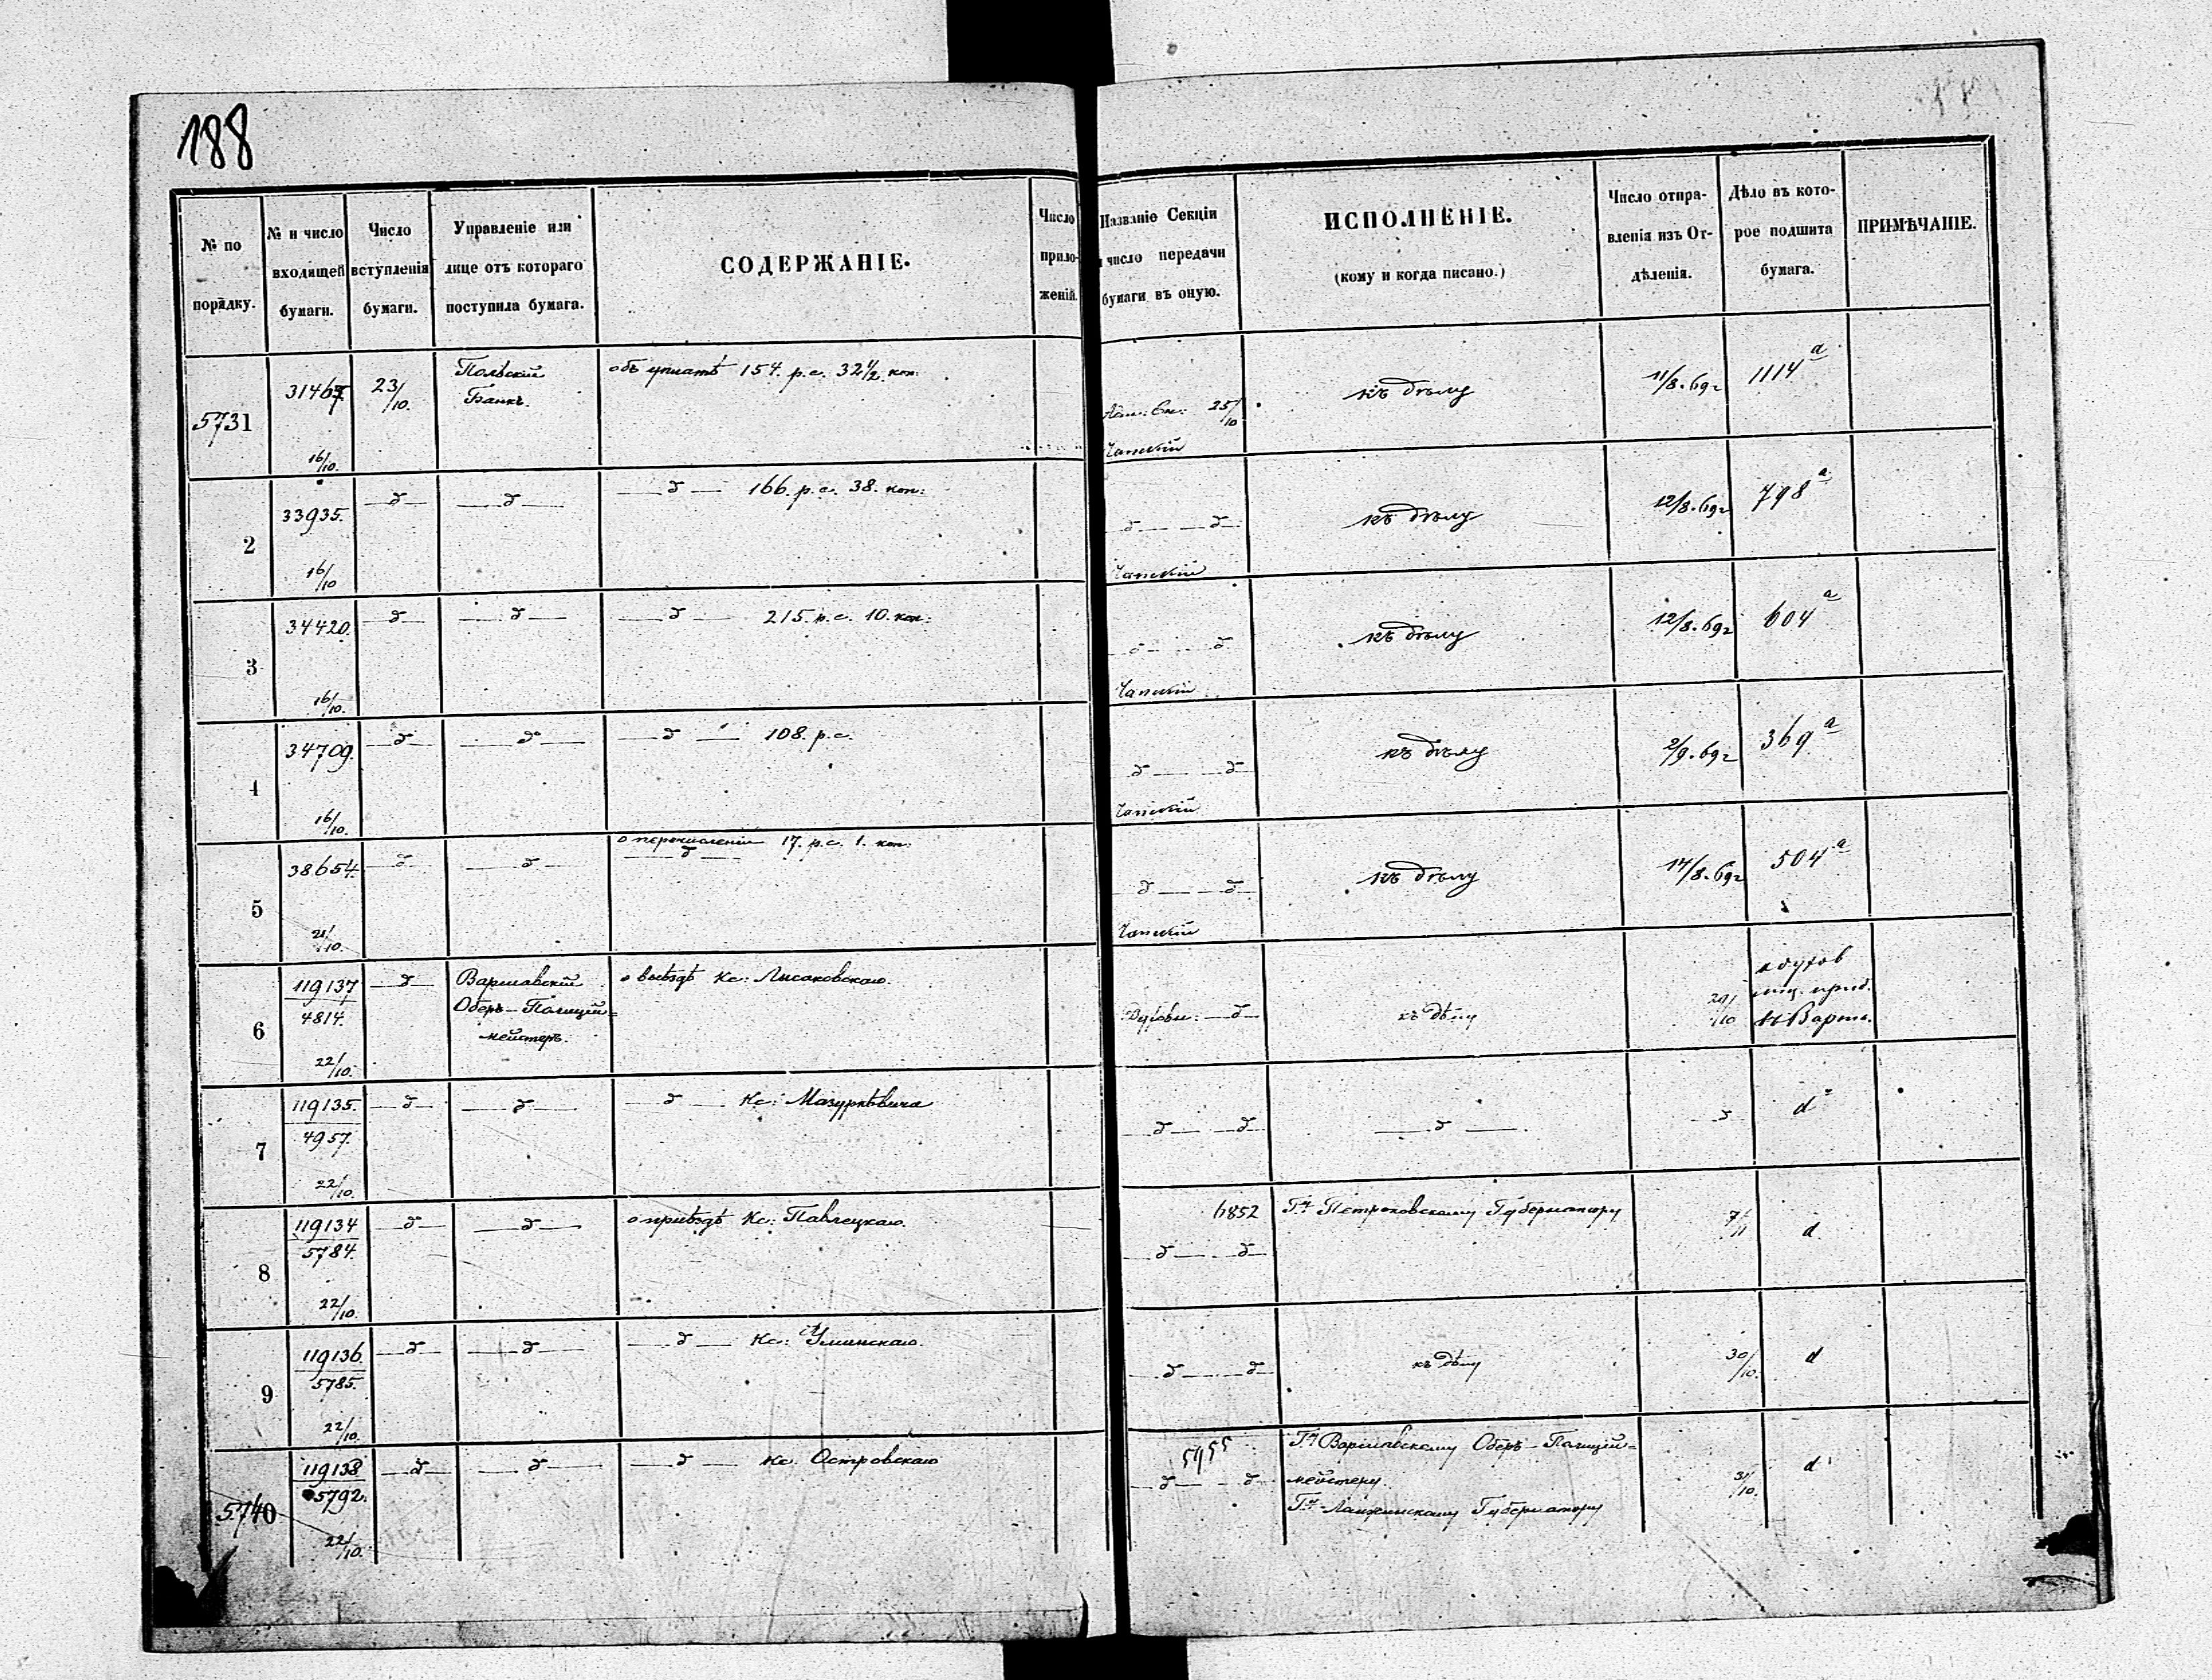 188
№ по порядку.
№ и число входящей бумаги.
Число вступленія бумаги.
Управленіе или лице отъ котораго поступила бумага.
СОДЕРЖАНІЕ.
Число прило-женій.
Названіе Секціи и число передачи бумаги въ оную.
ИСПОЛНЕНІЕ.
(кому и когда писано.)
Число отпра-вленія изъ От-дѣленія.
Дѣло въ кото-рое подшита бумага.
ПРИМѢЧАНІЕ.
5731 31467. 16/10. 23/10. Польскій Банкъ. объ уплатѣ 154. р. с. 32 1/2. коп: 25/10 Чапскій къ дѣлу 11/8. 69 г 1114 а
2 33935. 16/10 —д— —д— —д— 166. р. с. 38. коп: д — — д Чапскій къ дѣлу 12/8. 69 г 798 а
3 34420. 16/10. —д— —д— —д— 215. р. с. 10. коп: д — — д Чапскій къ дѣлу 12/8. 69 г 604 а
4 34709. 16/10. —д— —д— —д— 108. р. с. д — — д Чапскій къ дѣлу 2/9. 69 г 369 а
5 38654. 21/10. —д— —д— о перечисленіи 17. р. с. 1. коп: —д— д — — д Чапскій къ дѣлу 14/8. 69 г 504 а
6 119137 / 4814. 22/10. —д— Варшавскій Оберъ-Полицій=мейстеръ. о выѣздѣ Кс: Лисаковскаго. Духовн: —д— къ дѣлу 29/10 о духов лиц. приб. въ Варш.
7 119135. / 4957. 22/10. —д— —д— —д— Кс: Мазуркѣвича —д— —д— —д— д d
8 119134 / 5784. 22/10. —д— —д— о пріѣздѣ Кс: Павлецкаго. 6852 —д— —д— Г-у Петроковскому Губернатору 7/11 d
9 119136. / 5785. 22/10. —д— —д— —д— Кс: Уминскаго. —д— —д— къ дѣлу 30/10. d
5740 119138 / 5792. 22/10. —д— —д— —д— Кс. Островскаго 5955 —д— —д— Г-у Варшавскому Оберъ-Полицій=мейстеру. Г-у Ломжинскому Губернатору 31/10. d